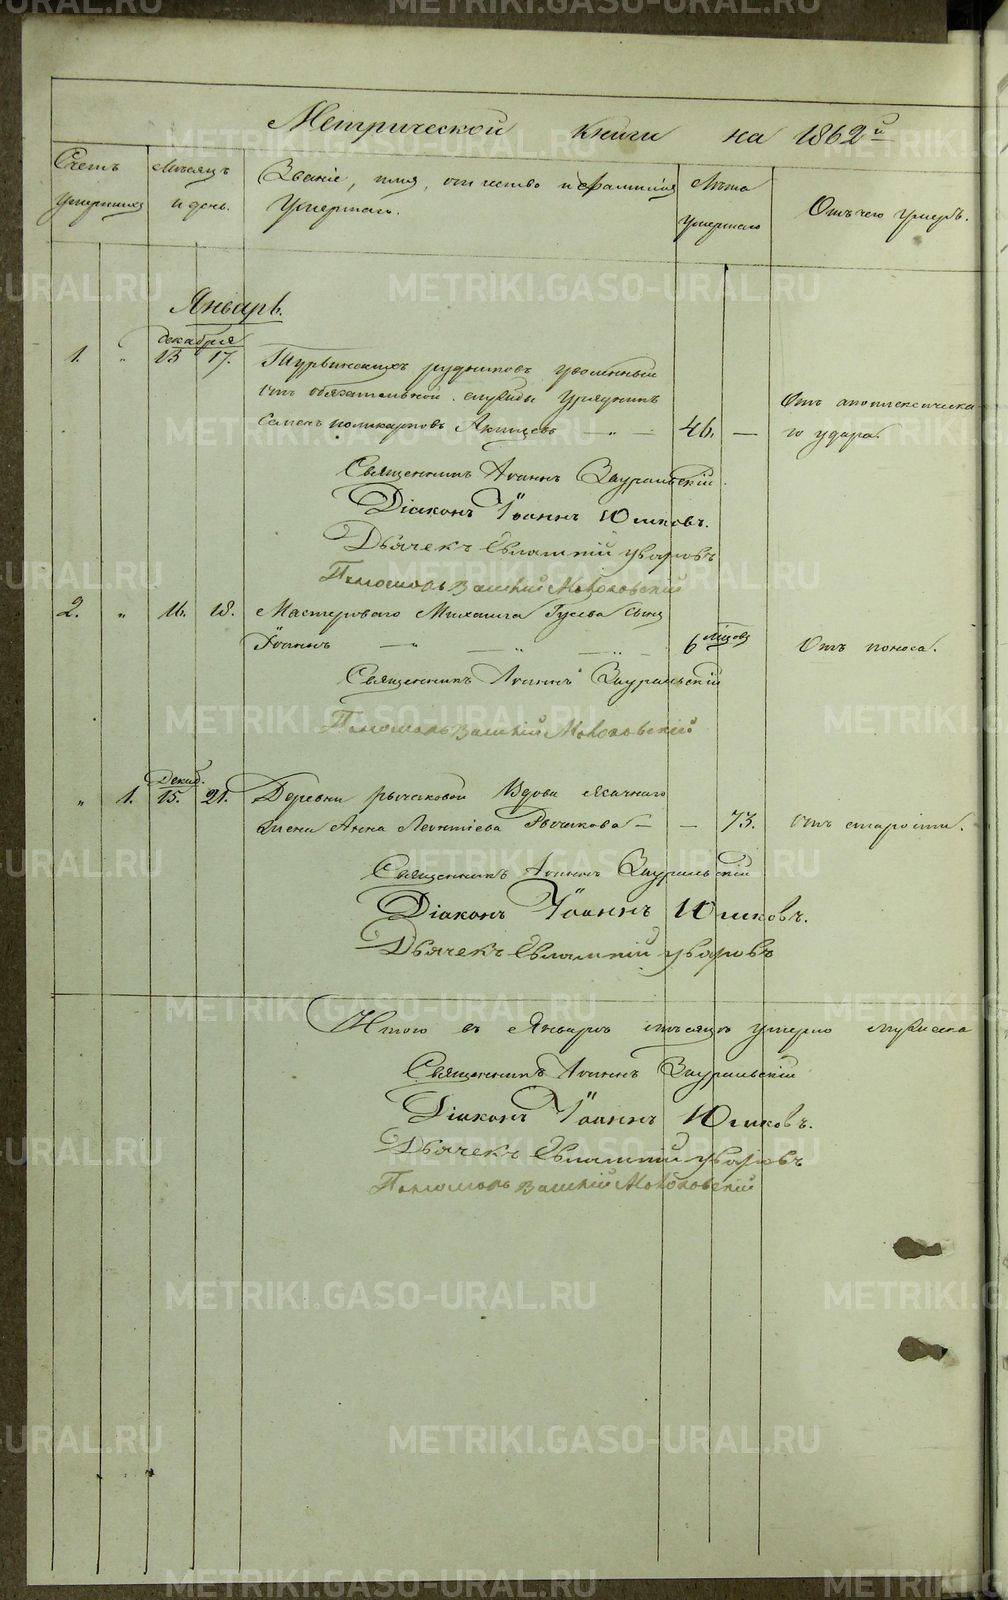 Метрической книги на 1862й
Счетъ умершихъ
Мѣсяцъ и день.
Званіе, имя, отчество и фамилія
Умершаго.
Лѣта умершаго
Отъ чего умеръ.
Январь.
декабря
1. " 13 17. Турьинскихъ рудниковъ уволенный
отъ обязательной службы Урядникъ
Семенъ Поликарповъ 46. —
Отъ апоплексическа-
го удара.
Священникъ Іоаннъ Зауральскій
Діаконъ Іоаннъ Юшковъ.
Дьячекъ Евлампій Уваровъ
Пономарь
2. " 16. 18. Мастероваго Михаила Гусева сынъ
Іоаннъ — " — " — " 6 мѣсяц.
Отъ поноса.
Священникъ Іоаннъ Зауральскій
Пономарь
Декаб.
" 1. 15. 21. Деревни Рычковой Вдова ясачнаго
жена Анна Леонтіева Рычкова — — 73. отъ старости.
Священникъ Іоаннъ Зауральскій
Діаконъ Іоаннъ Юшковъ.
Дьячекъ Евлампій Уваровъ
Итого въ Январѣ мѣсяцѣ умерло мужеска
Священникъ Іоаннъ Зауральскій
Діаконъ Іоаннъ Юшковъ.
Дьячекъ Евлампій Уваровъ
Пономарь
METRIKI.GASO-URAL.RU